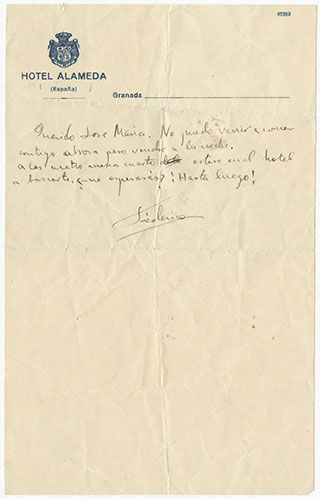 HOTEL ALAMEDA
(España)
Granada
Querido Jose Maria. No puedo venir a comer
contigo ahora pero vendré a la noche.
A las cuatro menos cuarto estare en el hotel
a buscarte. ¿me esperarás? ¡Hasta luego!
Federico